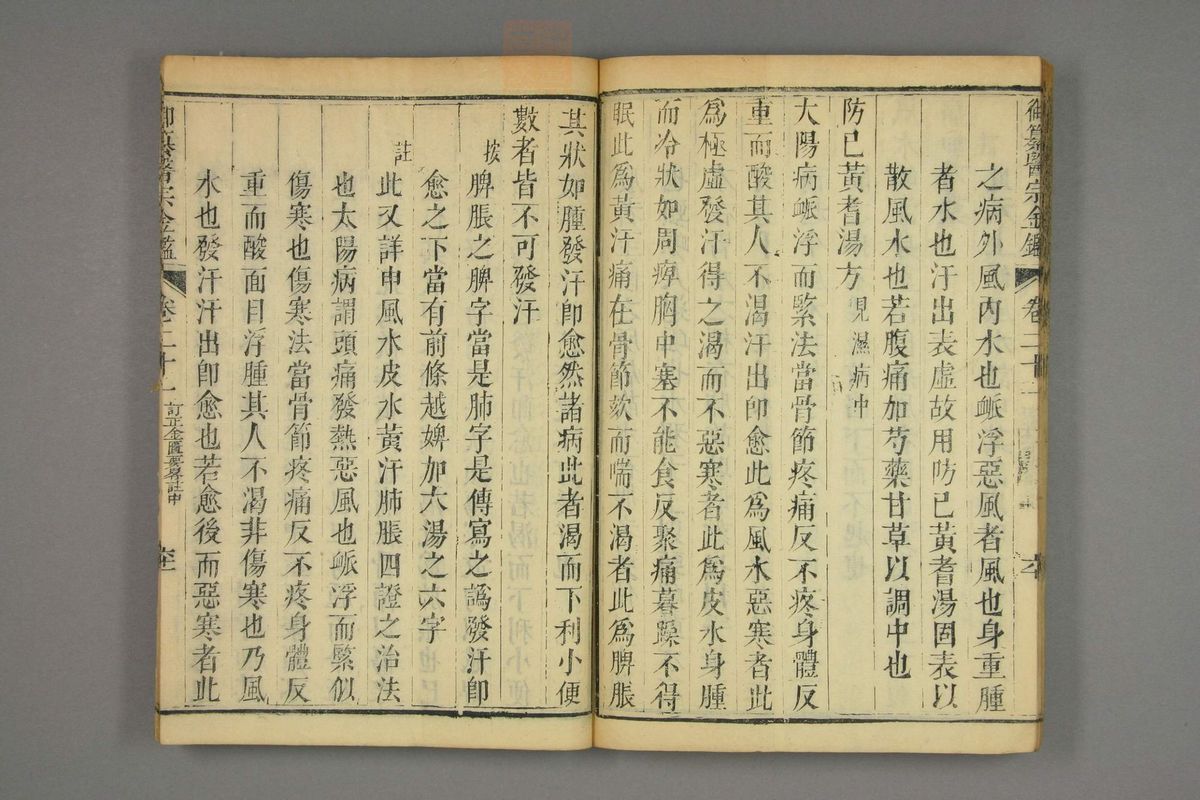 御纂醫宗金鑑
卷二十一
之病外風內水也衇浮惡風者風也身重腫
者水也汗出表虛故用防已黃耆湯固表以
散風水也若腹痛加芍藥甘草以調中也
防已黃耆湯方 見濕病中
大陽病衇浮而緊法當骨節疼痛反不疼身體反
重而酸其人不渴汗出卽愈此爲風水惡寒者此
爲極虛發汗得之渴而不惡寒者此爲皮水身腫
而冷狀如周痺胸中塞不能食反聚痛暮躁不得
眠此爲黃汗痛在骨節欬而喘不渴者此爲脾脹
其狀如腫發汗卽愈然諸病此者渴而下利小便
數者皆不可發汗
按 脾脹之脾字當是肺字是傳寫之譌發汗卽
愈之下當有前條越婢加朮湯之六字
註 此又詳申風水皮水黃汗肺脹四證之治法
也太陽病謂頭痛發熱惡風也衇浮而緊似
傷寒也傷寒法當骨節疼痛反不疼身體反
重而酸面目浮腫其人不渴非傷寒也乃風
水也發汗汗出卽愈也若愈後而惡寒者此
御纂醫宗金鑑
卷二十一
訂正金匱要畧註中